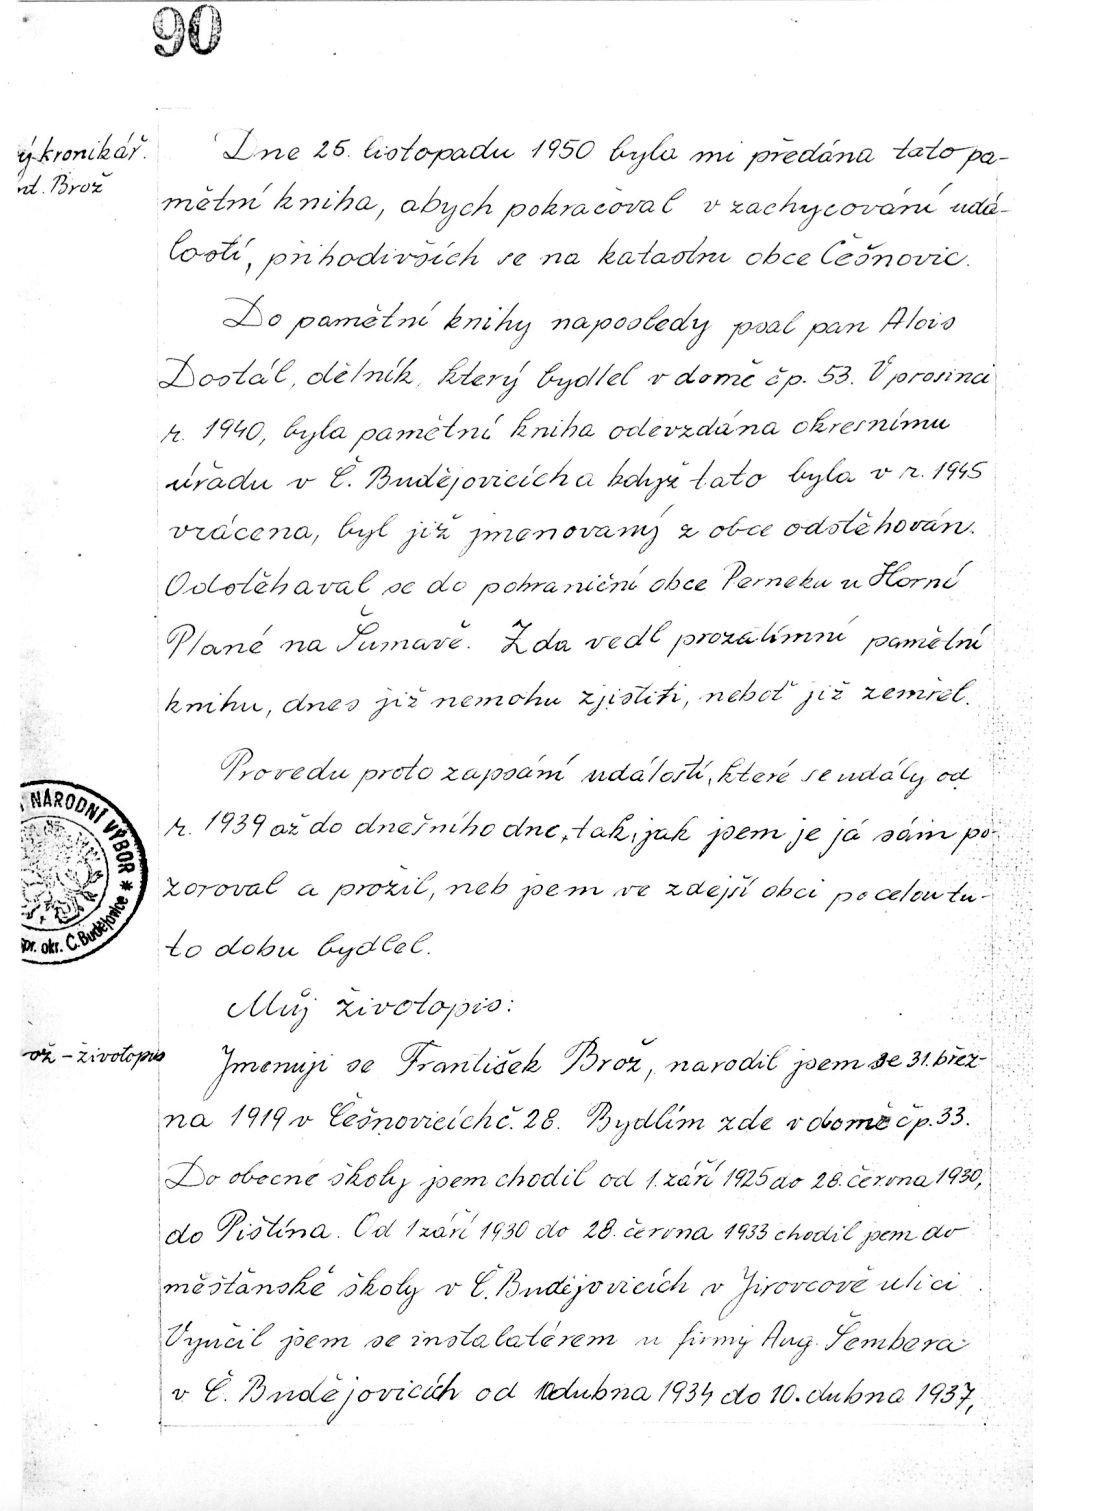 90
ý kronikář.
nt. Brož
Dne 25. listopadu 1950 byla mi předána tato pa-
mětní kniha, abych pokračoval v zachycování udá-
lostí, přihodivších se na katastru obce Češnovic.
Do pamětní knihy naposledy psal pan Alois
Dostál, dělník, který bydlel v domě čp. 53. V prosinci
r. 1940, byla pamětní kniha odevzdána okresnímu
úřadu v Č. Budějovicích a když tato byla v r. 1945
vrácena, byl již jmenovaný z obce odstěhován.
Odstěhaval se do pohraniční obce Perneku u Horní
Plané na Šumavě. Zda vedl prozatímní pamětní
knihu, dnes již nemohu zjistiti, neboť již zemřel.
Provedu proto zapsání událostí, které se udály od
r. 1939 až do dnešního dne, tak, jak jsem je já sám po-
zoroval a prožil, neb jsem ve zdejší obci po celou tu-
to dobu bydlel.
NÁRODNÍ VÝBOR *
okr. Č. Budějovice
Můj životopis:
ož – životopis
Jmenuji se František Brož, narodil jsem se 31. břez-
na 1919 v Češnovicích č. 28. Bydlím zde v domě čp. 33.
Do obecné školy jsem chodil od 1. září 1925 do 28. června 1930,
do Pištína. Od 1 září 1930 do 28. června 1933 chodil jsem do
měšťanské školy v Č. Budějovicích v Jirovcově ulici.
Vyučil jsem se instalatérem u firmy Aug. Šembera
v Č. Budějovicích od 10 dubna 1934 do 10. dubna 1937,